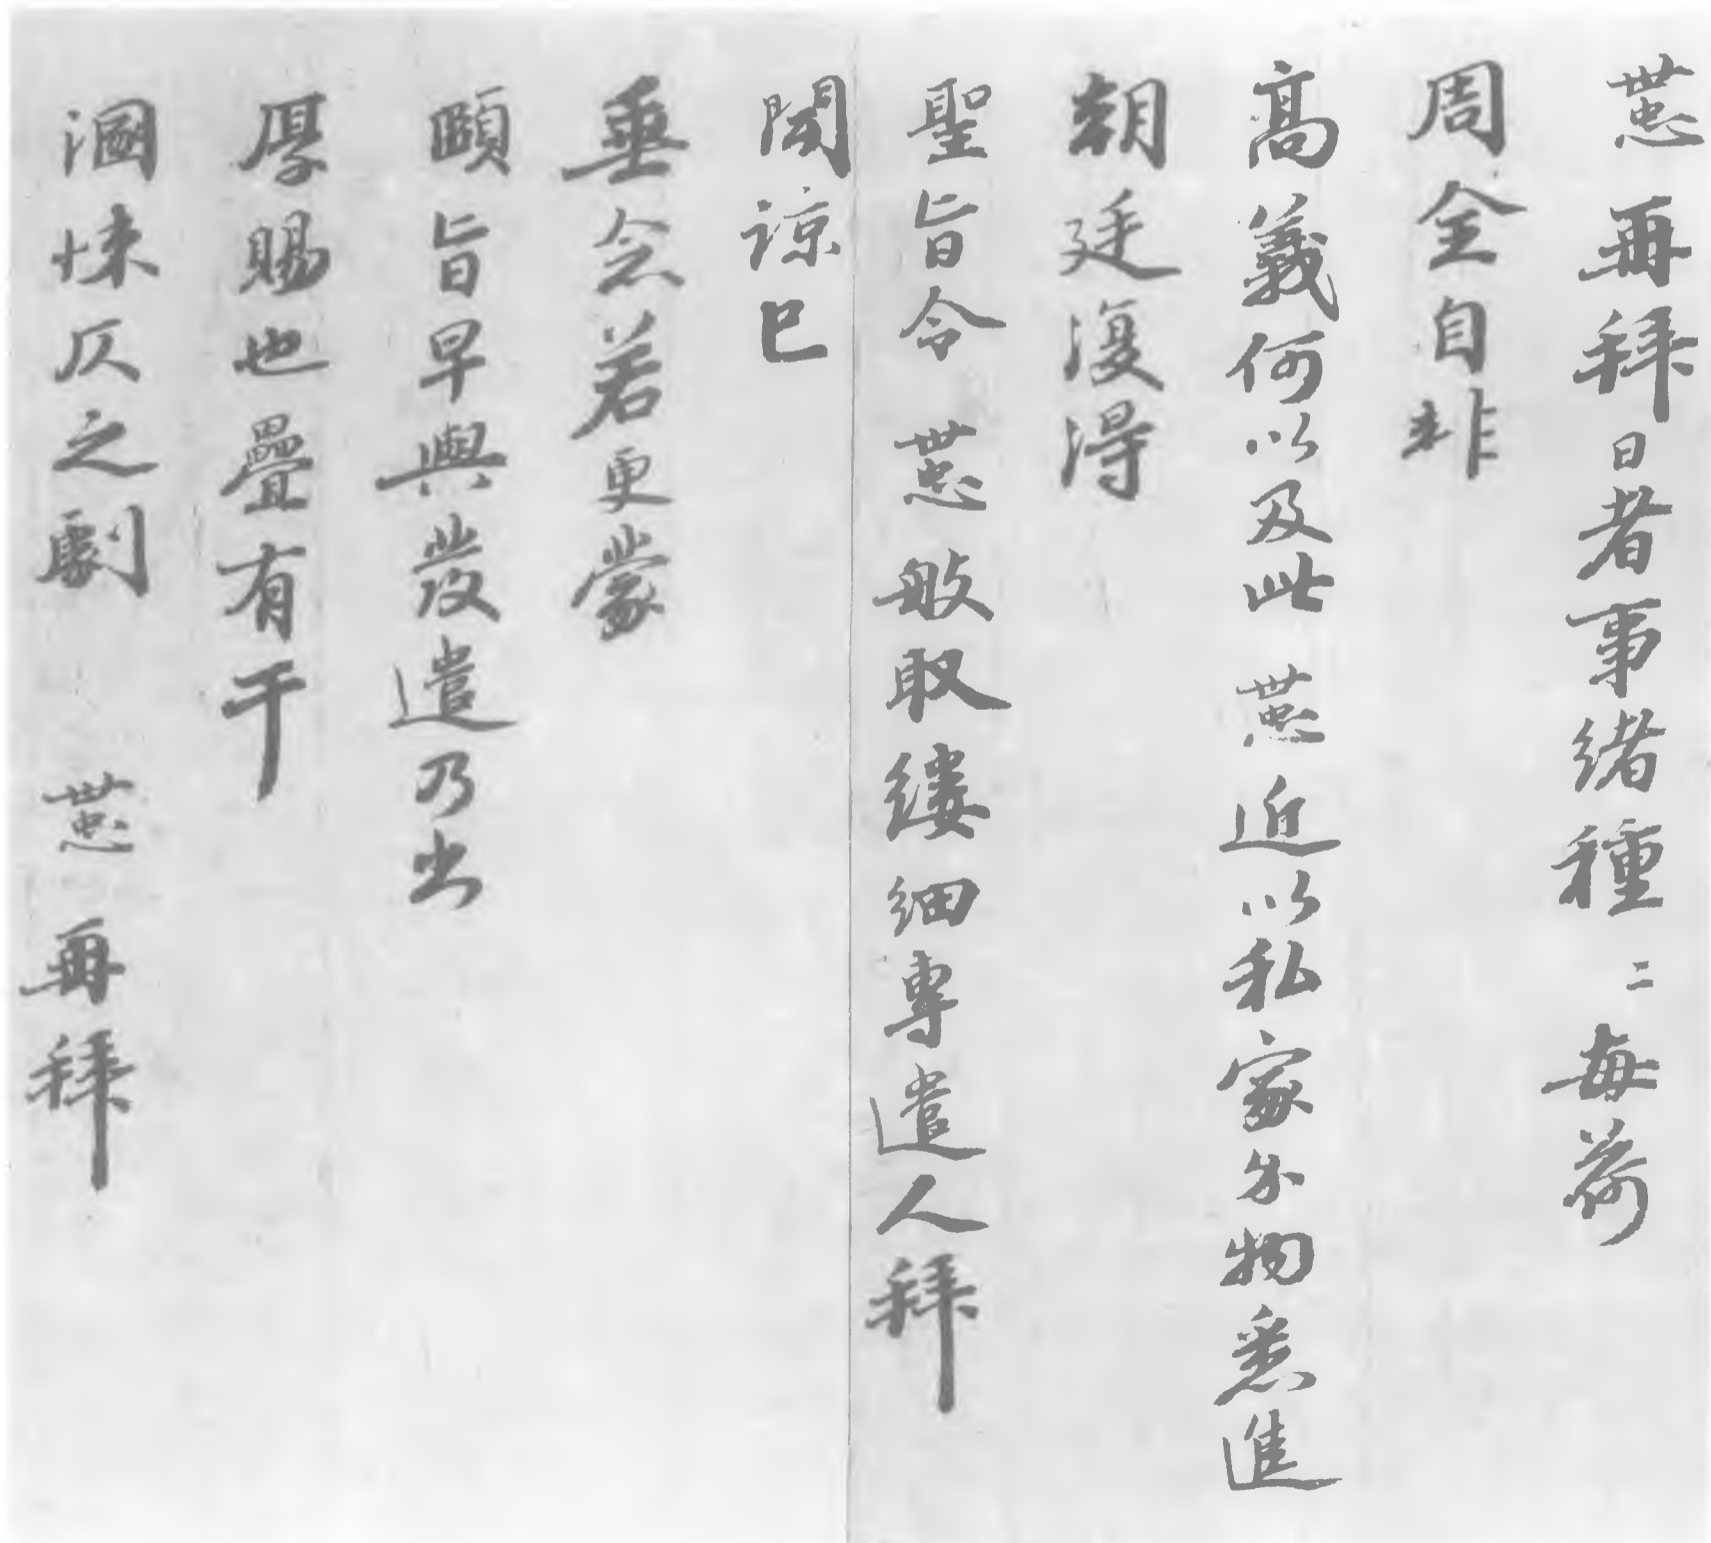 懘再拜日者事緒種二每荷
周全自非
高義何以及此懘近以私家分物悉進
朝廷復得
聖旨令懘般取縷細專遣人拜
聞諒已
垂念若更蒙
頤旨早與發遣乃出
厚賜也疊有干
溷悚仄之劇 懘再拜